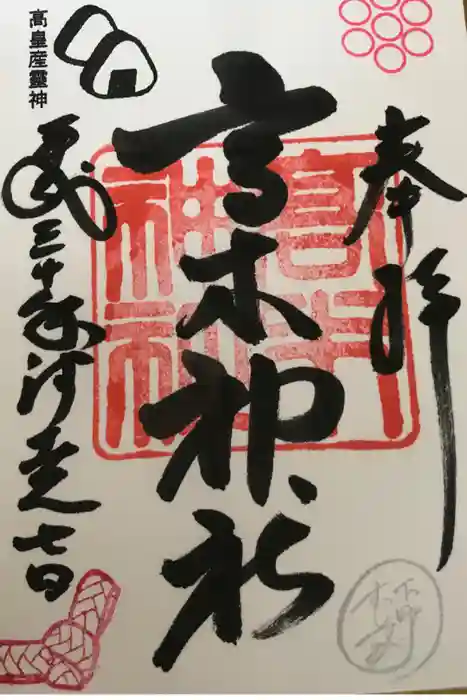 奉拝
高木神社
高木神社
高皇産靈神
平成三十年師走七日